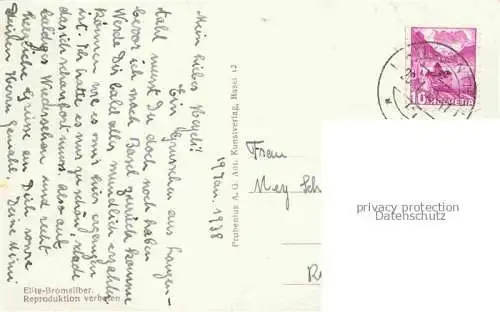 19 Jan. 1938
Mein liebes Meyeli!
Ein Grüsschen aus Langen-
thal musst Du doch noch haben
bevor ich nach Basel zurück komme
Werde Dir bald alles mündlich erzählen
können wie es mir hier ergangen
ist. Ich hatte es nur zu schön, schade
dass ich schon fort muss, also auf
baldiges Wiedersehen und recht
herzliche Grüsse an Dich, sowie
Deinen Herrn Gemahl, Deine Mimi
Elite-Bromsilber.
Reproduktion verboten
Probenius A. G. Ant. Kunstverlag, Basel 12
Frau
Mey Sch
HELVETIA
10
privacy protection
Datenschutz